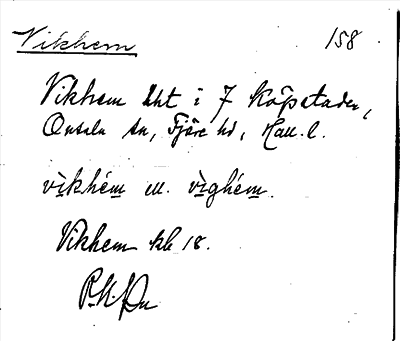 Vikhem 158
Vikhem lht i 7 Köpstaden,
Onsala sn, Fjäre hd, Hall. l.
vìkhém el. vìghém.
Vikhem kb 18.